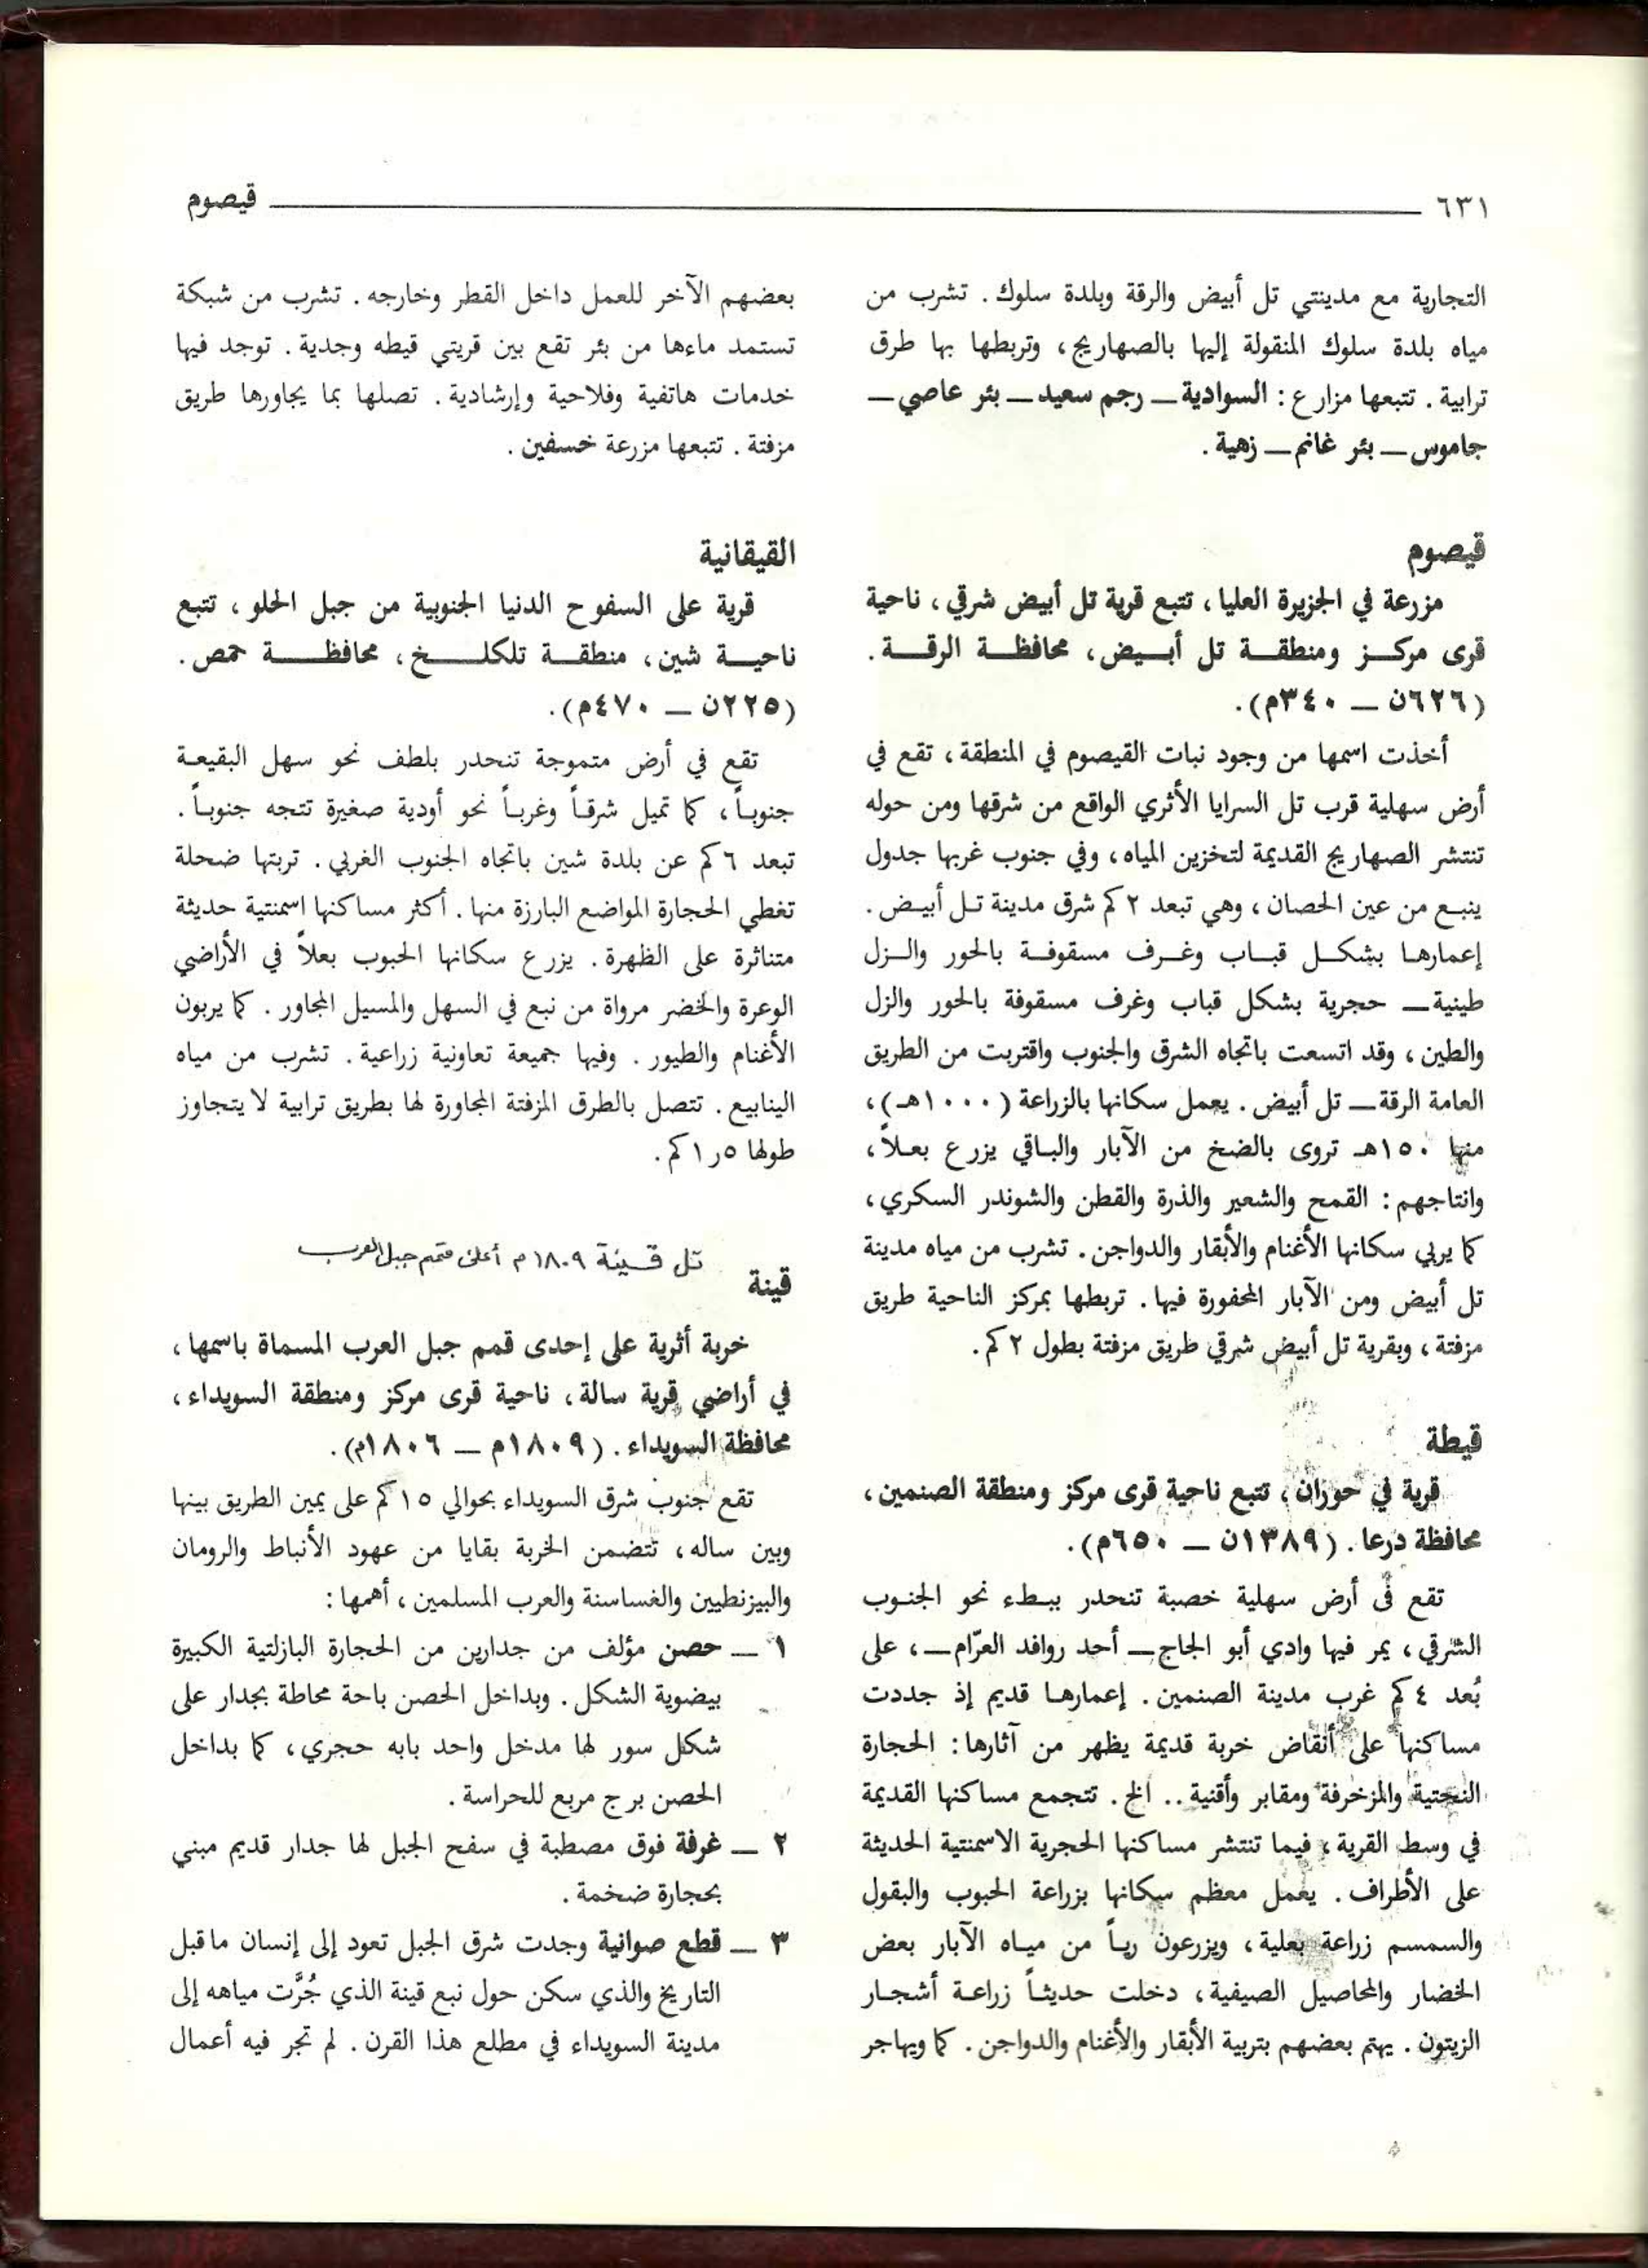 ٦٣١ قيصوم
التجارية مع مدينتي تل أبيض والرقة وبلدة سلوك . تشرب من
مياه بلدة سلوك المنقولة إليها بالصهاريج ، وتربطها بها طرق
ترابية . تتبعها مزارع : السوادية ــ رجم سعيد ــ بئر عاصي ــ
جاموس ــ بئر غانم ــ زهية .
قيصوم
مزرعة في الجزيرة العليا ، تتبع قرية تل أبيض شرقي ، ناحية
قرى مركز ومنطقة تل أبيض ، محافظة الرقة .
(٦٢٦ن ــ ٣٤٠م).
أخذت اسمها من وجود نبات القيصوم في المنطقة ، تقع في
أرض سهلية قرب تل السرايا الأثري الواقع من شرقها ومن حوله
تنتشر الصهاريج القديمة لتخزين المياه ، وفي جنوب غربها جدول
ينبع من عين الحصان ، وهي تبعد ٢ كم شرق مدينة تل أبيض .
إعمارها بشكل قباب وغرف مسقوفة بالحور والزل
طينية ــ حجرية بشكل قباب وغرف مسقوفة بالحور والزل
والطين ، وقد اتسعت باتجاه الشرق والجنوب واقتربت من الطريق
العامة الرقة ــ تل أبيض . يعمل سكانها بالزراعة (١٠٠٠هـ) ،
منها ١٥٠هـ تروى بالضخ من الآبار والباقي يزرع بعلاً ،
وانتاجهم : القمح والشعير والذرة والقطن والشوندر السكري ،
كما يربي سكانها الأغنام والأبقار والدواجن . تشرب من مياه مدينة
تل أبيض ومن الآبار المحفورة فيها . تربطها بمركز الناحية طريق
مزفتة ، وبقرية تل أبيض شرقي طريق مزفتة بطول ٢ كم .
قيطة
قرية في حوران ، تتبع ناحية قرى مركز ومنطقة الصنمين ،
محافظة درعا . (١٣٨٩ن ــ ٦٥٠م).
تقع في أرض سهلية خصبة تنحدر ببطء نحو الجنوب
الشرقي ، يمر فيها وادي أبو الجاج ــ أحد روافد العرّام ــ ، على
بُعد ٤ كم غرب مدينة الصنمين . إعمارها قديم إذ جددت
مساكنها على أنقاض خربة قديمة يظهر من آثارها : الحجارة
النحتية والمزخرفة ومقابر وأقنية .. الخ . تتجمع مساكنها القديمة
في وسط القرية ، فيما تنتشر مساكنها الحجرية الاسمنتية الحديثة
على الأطراف . يعمل معظم سكانها بزراعة الحبوب والبقول
والسمسم زراعة بعلية ، ويزرعون رياً من مياه الآبار بعض
الخضار والمحاصيل الصيفية ، دخلت حديثاً زراعة أشجار
الزيتون . يهتم بعضهم بتربية الأبقار والأغنام والدواجن . كما ويهاجر
بعضهم الآخر للعمل داخل القطر وخارجه . تشرب من شبكة
تستمد ماءها من بئر تقع بين قريتي قيطه وجدية . توجد فيها
خدمات هاتفية وفلاحية وإرشادية . تصلها بما يجاورها طريق
مزفتة . تتبعها مزرعة خسفين .
القيقانية
قرية على السفوح الدنيا الجنوبية من جبل الحلو ، تتبع
ناحية شين ، منطقة تلكلخ ، محافظة حمص .
(٢٢٥ن ــ ٤٧٠م).
تقع في أرض متموجة تنحدر بلطف نحو سهل البقيعة
جنوباً ، كما تميل شرقاً وغرباً نحو أودية صغيرة تتجه جنوباً .
تبعد ٦ كم عن بلدة شين باتجاه الجنوب الغربي . تربتها ضحلة
تغطي الحجارة المواضع البارزة منها . أكثر مساكنها اسمنتية حديثة
متناثرة على الظهرة . يزرع سكانها الحبوب بعلاً في الأراضي
الوعرة والخضر مرواة من نبع في السهل والمسيل المجاور . كما يربون
الأغنام والطيور . وفيها جميعة تعاونية زراعية . تشرب من مياه
الينابيع . تتصل بالطرق المزفتة المجاورة لها بطريق ترابية لا يتجاوز
طولها ١٫٥ كم .
تل قينة ١٨٠٩ م أعلى قمم جبل العرب
قينة
خربة أثرية على إحدى قمم جبل العرب المسماة باسمها ،
في أراضي قرية سالة ، ناحية قرى مركز ومنطقة السويداء ،
محافظة السويداء . (١٨٠٩م ــ ١٨٠٦م).
تقع جنوب شرق السويداء بحوالي ١٥ كم على يمين الطريق بينها
وبين ساله ، تتضمن الخربة بقايا من عهود الأنباط والرومان
والبيزنطيين والغساسنة والعرب المسلمين ، أهمها :
١ ــ حصن مؤلف من جدارين من الحجارة البازلتية الكبيرة
بيضوية الشكل . وبداخل الحصن باحة محاطة بجدار على
شكل سور لها مدخل واحد بابه حجري ، كما بداخل
الحصن برج مربع للحراسة .
٢ ــ غرفة فوق مصطبة في سفح الجبل لها جدار قديم مبني
بحجارة ضخمة .
٣ ــ قطع صوانية وجدت شرق الجبل تعود إلى إنسان ماقبل
التاريخ والذي سكن حول نبع قينة الذي جُرَّت مياهه إلى
مدينة السويداء في مطلع هذا القرن . لم تجر فيه أعمال